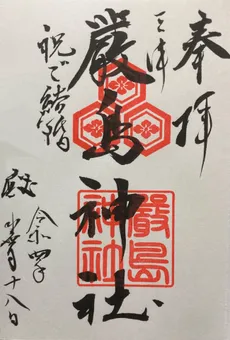 奉拝
三津
嚴島神社
嚴島
神社
祝ご結婚
殿
令和四年
十八日